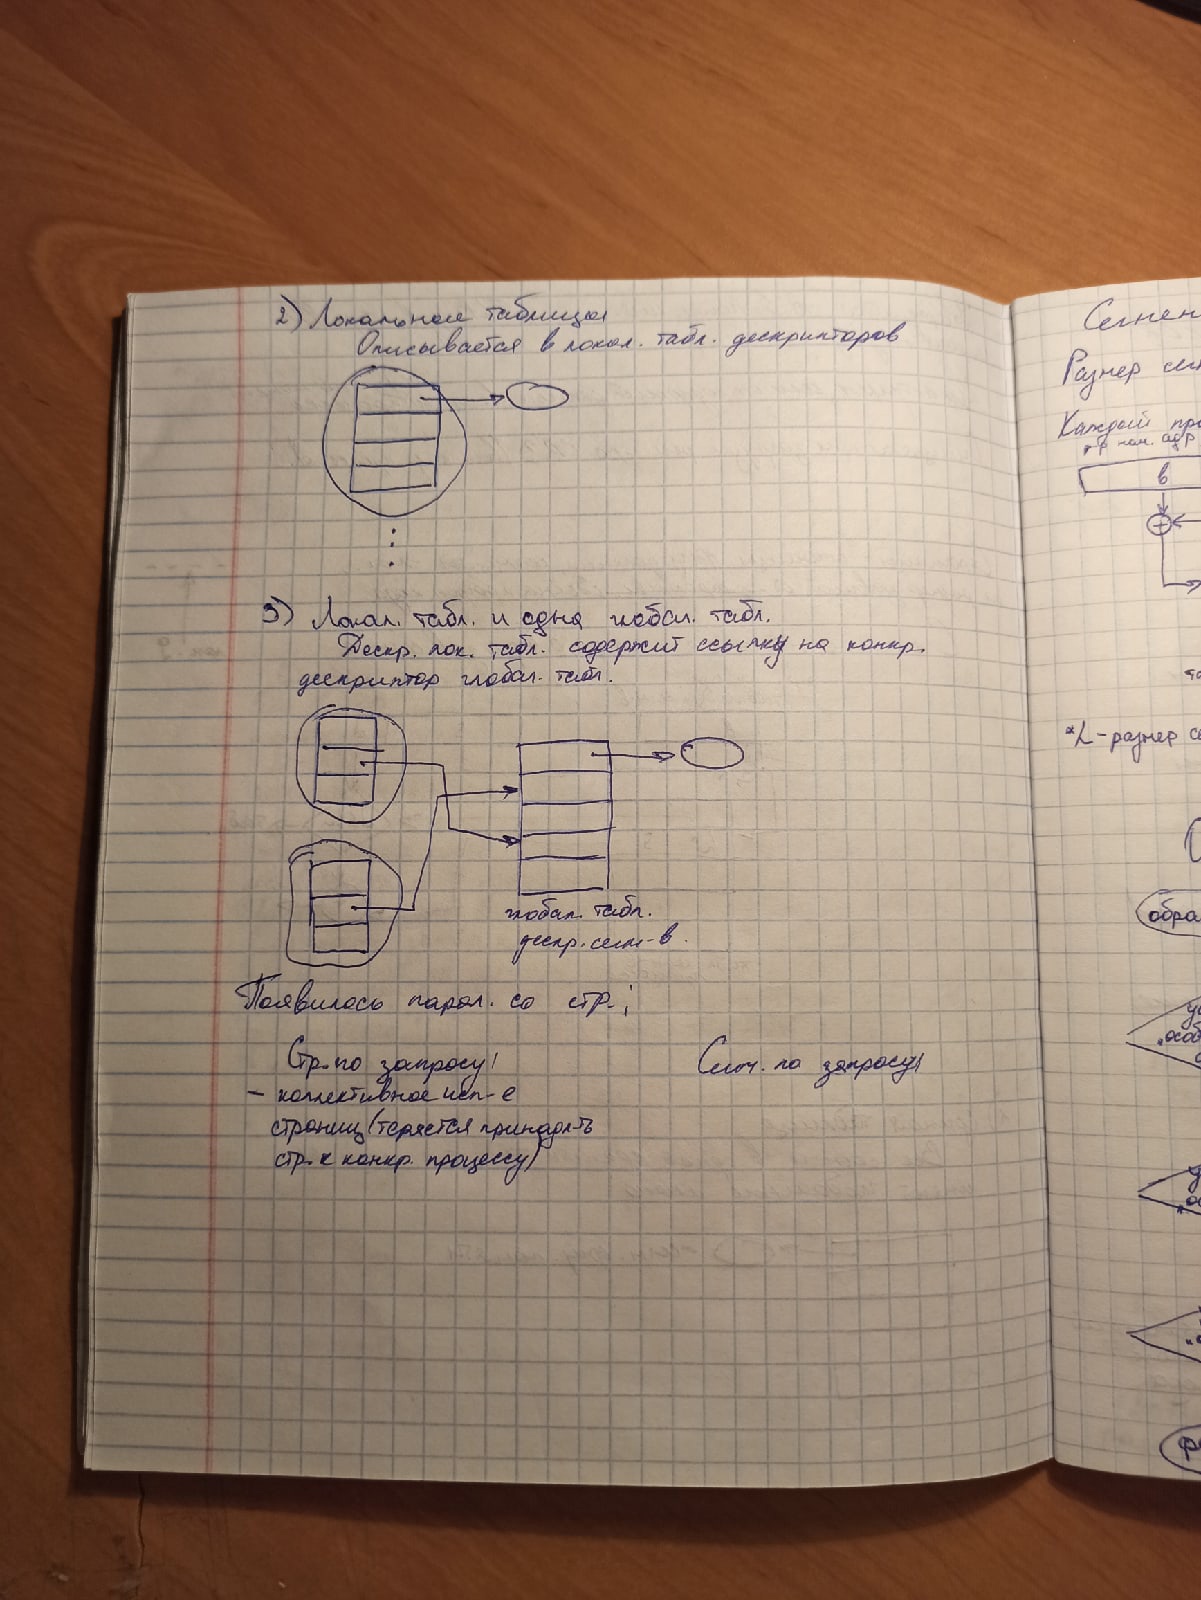 2) Локальные таблицы
Описывается в локал. табл. дескрипторов
3) Локал. табл. и одна глобал. табл.
Дескр. лок. табл. содержит ссылку на конкр.
дескриптор глобал. табл.
глобал. табл.
дескр. сегм-в.
Появилось парал. со стр.;
Стр. по запросу
Сегм. по запросу
- коллективное исп-е
страниц (теряется принадл-ть
стр. к конкр. процессу)
Сегмен
Размер сегм
Каждый про
нач. адр
в
+
*L-размер се
обра